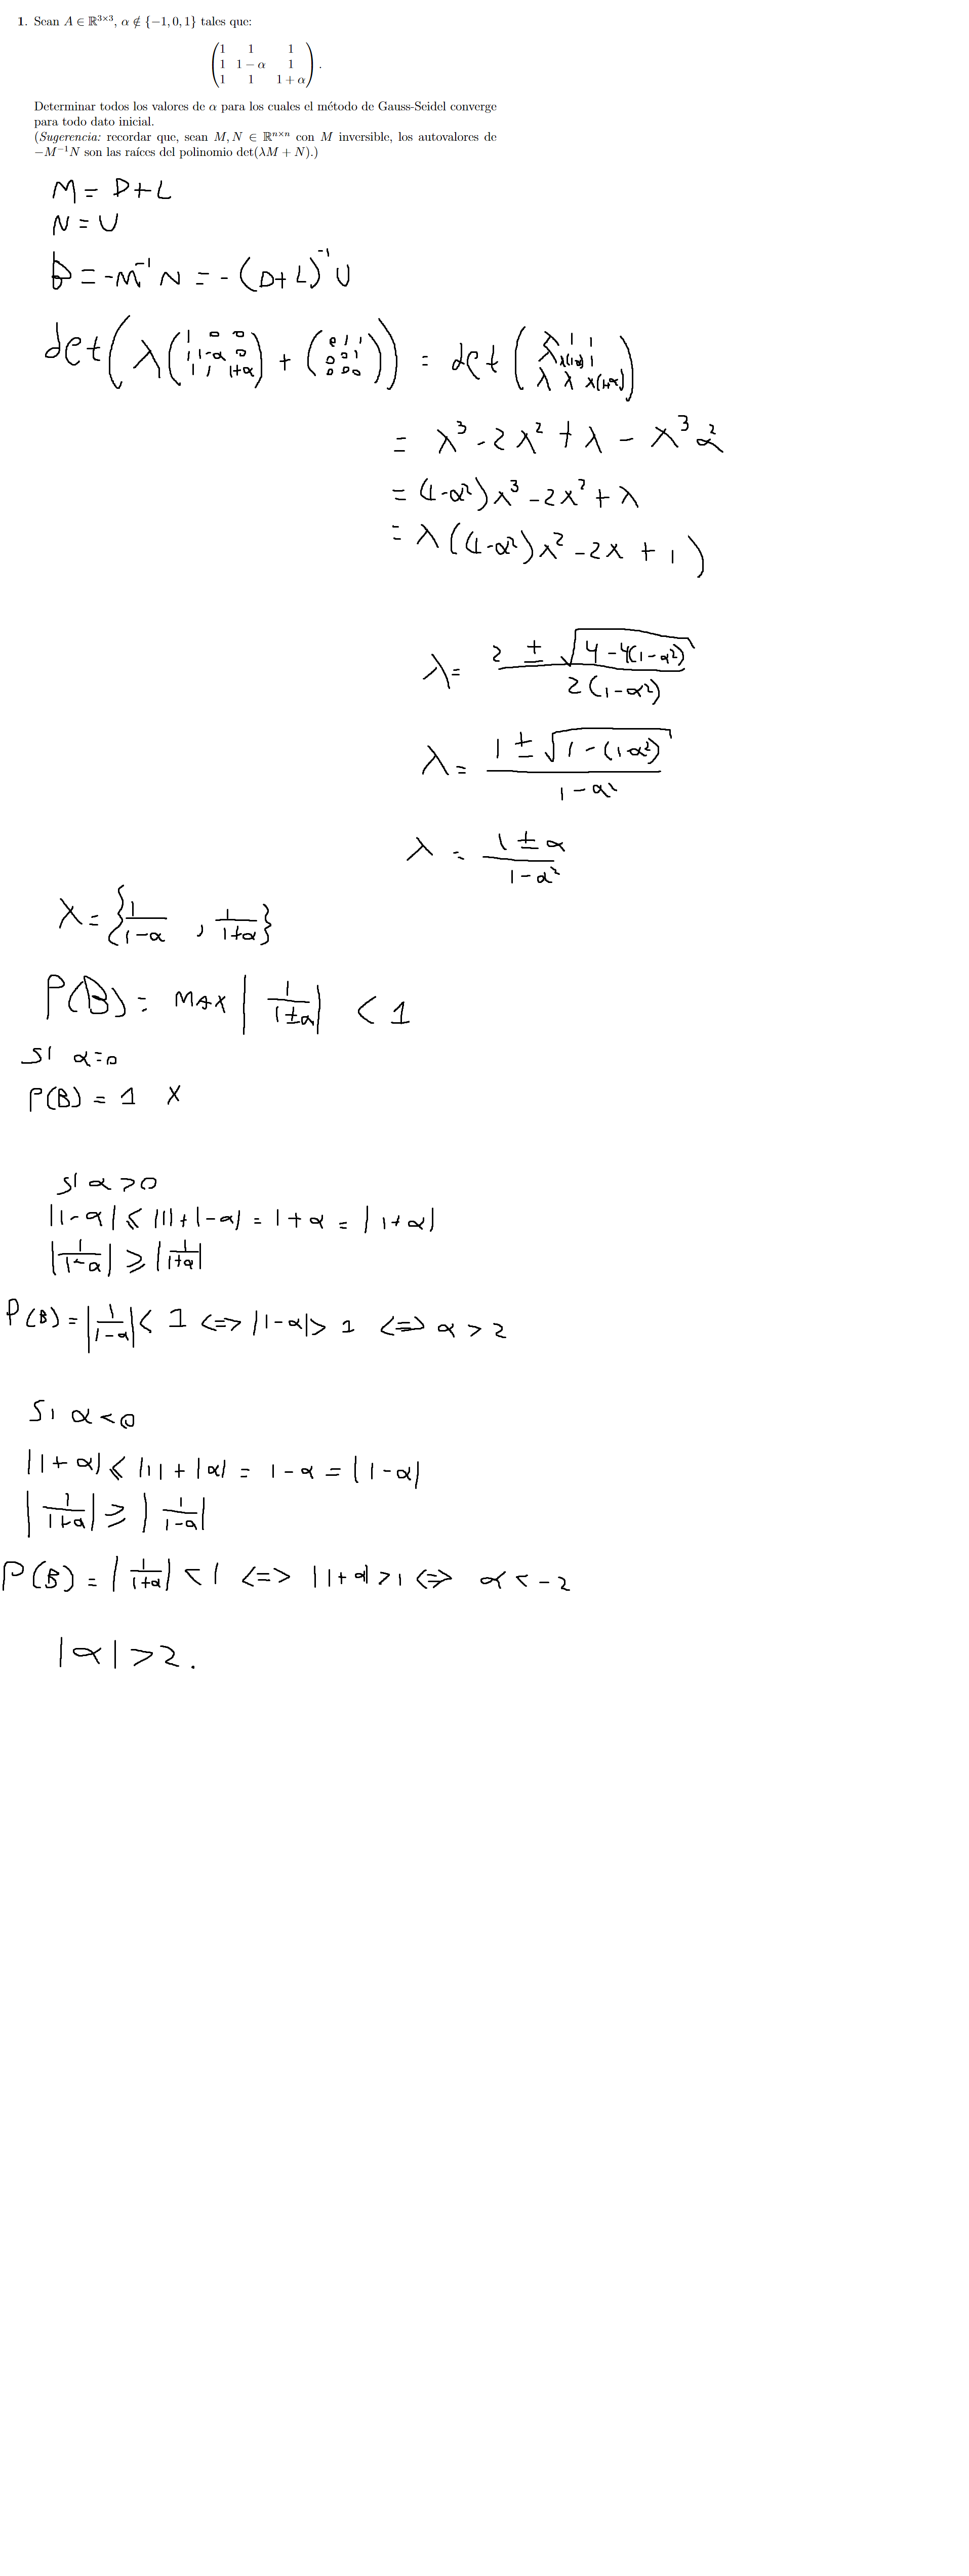 1. Sean A ∈ ℝ³ˣ³, α ∉ {−1, 0, 1} tales que:
1 1 1
1 1 − α 1
1 1 1 + α
.
Determinar todos los valores de α para los cuales el método de Gauss-Seidel converge
para todo dato inicial.
(Sugerencia: recordar que, sean M, N ∈ ℝⁿˣⁿ con M inversible, los autovalores de
−M⁻¹N son las raíces del polinomio det(λM + N).)
M = D+L
N = U
B = -M⁻¹N = -(D+L)⁻¹U
det(λ(1 0 0; 1 1-α 0; 1 1 1+α) + (0 1 1; 0 0 1; 0 0 0)) = det(λ 1 1; λ λ(1-α) 1; λ λ λ(1+α))
= λ³ - 2λ² + λ - λ³α²
= (1-α²)λ³ - 2λ² + λ
= λ((1-α²)λ² - 2λ + 1)
λ = (2 ± √(4-4(1-α²))) / (2(1-α²))
λ = (1 ± √(1-(1-α²))) / (1-α²)
λ = (1 ± α) / (1-α²)
λ = {1/(1-α), 1/(1+α)}
ρ(B) = MAX |1/(1±α)| < 1
SI α=0
ρ(B) = 1 X
SI α>0
|1-α| ≤ |1|+|-α| = 1+α = |1+α|
|1/(1-α)| ≥ |1/(1+α)|
ρ(B) = |1/(1-α)| < 1 <=> |1-α| > 1 <=> α > 2
SI α<0
|1+α| ≤ |1|+|α| = 1-α = |1-α|
|1/(1+α)| ≥ |1/(1-α)|
ρ(B) = |1/(1+α)| < 1 <=> |1+α| > 1 <=> α < -2
|α| > 2.